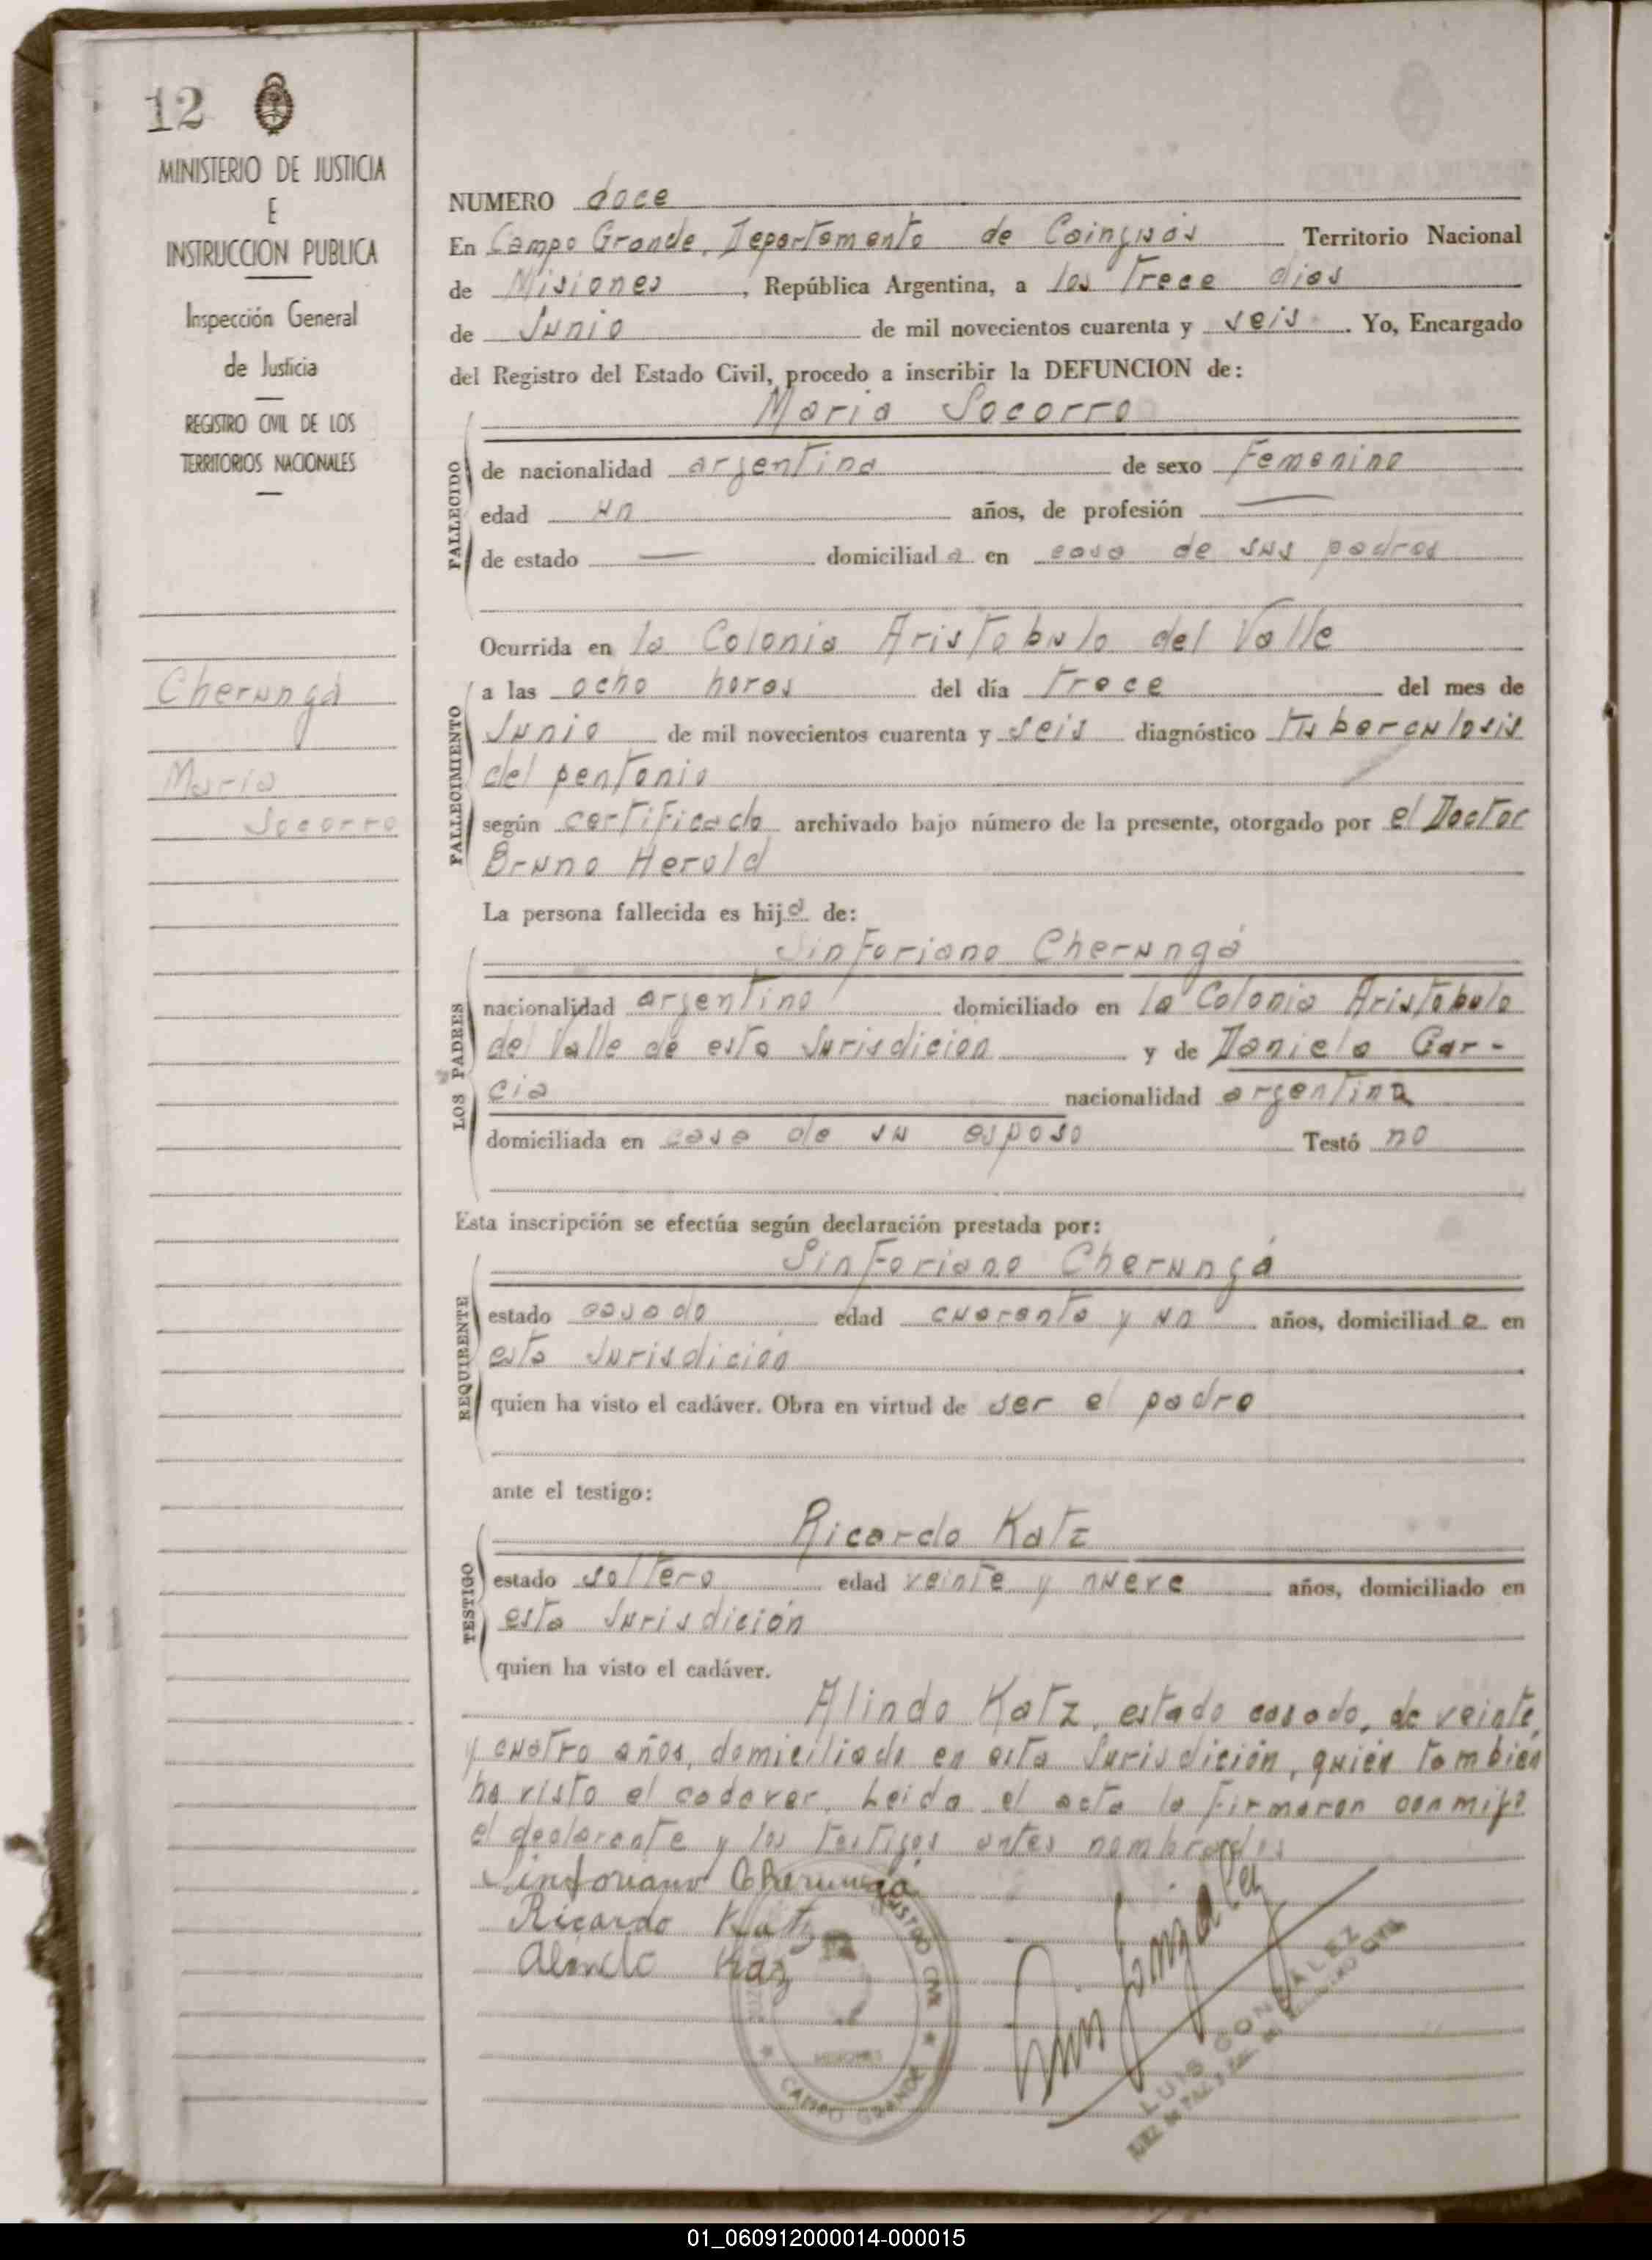 12
MINISTERIO DE JUSTICIA
E
INSTRUCCION PUBLICA
Inspección General
de Justicia
REGISTRO CIVIL DE LOS
TERRITORIOS NACIONALES
Cherungá
María
Socorro
NUMERO doce
En Campo Grande, Departamento de Cainguás Territorio Nacional
de Misiones, República Argentina, a los trece dias
de Junio de mil novecientos cuarenta y seis. Yo, Encargado
del Registro del Estado Civil, procedo a inscribir la DEFUNCION de:
Maria Socorro
FALLECIDO
de nacionalidad argentina de sexo Femenino
edad un años, de profesión —
de estado — domiciliada en casa de sus padres
Ocurrida en la Colonia Aristobulo del Valle
FALLECIMIENTO
a las ocho horas del día trece del mes de
Junio de mil novecientos cuarenta y seis diagnóstico tuberculosis
del pentonio
según certificado archivado bajo número de la presente, otorgado por el Doctor
Bruno Herold
La persona fallecida es hija de:
LOS PADRES
Sinforiano Cherungá
nacionalidad argentino domiciliado en la Colonia Aristobulo
del Valle de esta Jurisdición y de Daniela Gar-
cia nacionalidad argentina
domiciliada en casa de su esposo Testó no
Esta inscripción se efectúa según declaración prestada por:
REQUIRENTE
Sinforiano Cherungá
estado casado edad cuarenta y un años, domiciliado en
esta Jurisdición
quien ha visto el cadáver. Obra en virtud de ser el padre
ante el testigo:
TESTIGO
Ricardo Katz
estado soltero edad veinte y nueve años, domiciliado en
esta Jurisdición
quien ha visto el cadáver.
Alindo Katz, estado casado, de veinte
y cuatro años, domiciliado en esta Jurisdición, quién tambien
ha visto el cadaver. Leida el acta la firmaron conmigo
el declarante y los testigos antes nombrados
Sinforiano Cherungá
Ricardo Katz
Alindo Kaz
Luis Gonzalez
REGISTRO CIVIL
MISIONES
CAMPO GRANDE
LUIS GONZALEZ
JUEZ DE PAZ Y ENC. DEL REGISTRO CIVIL
01_060912000014-000015